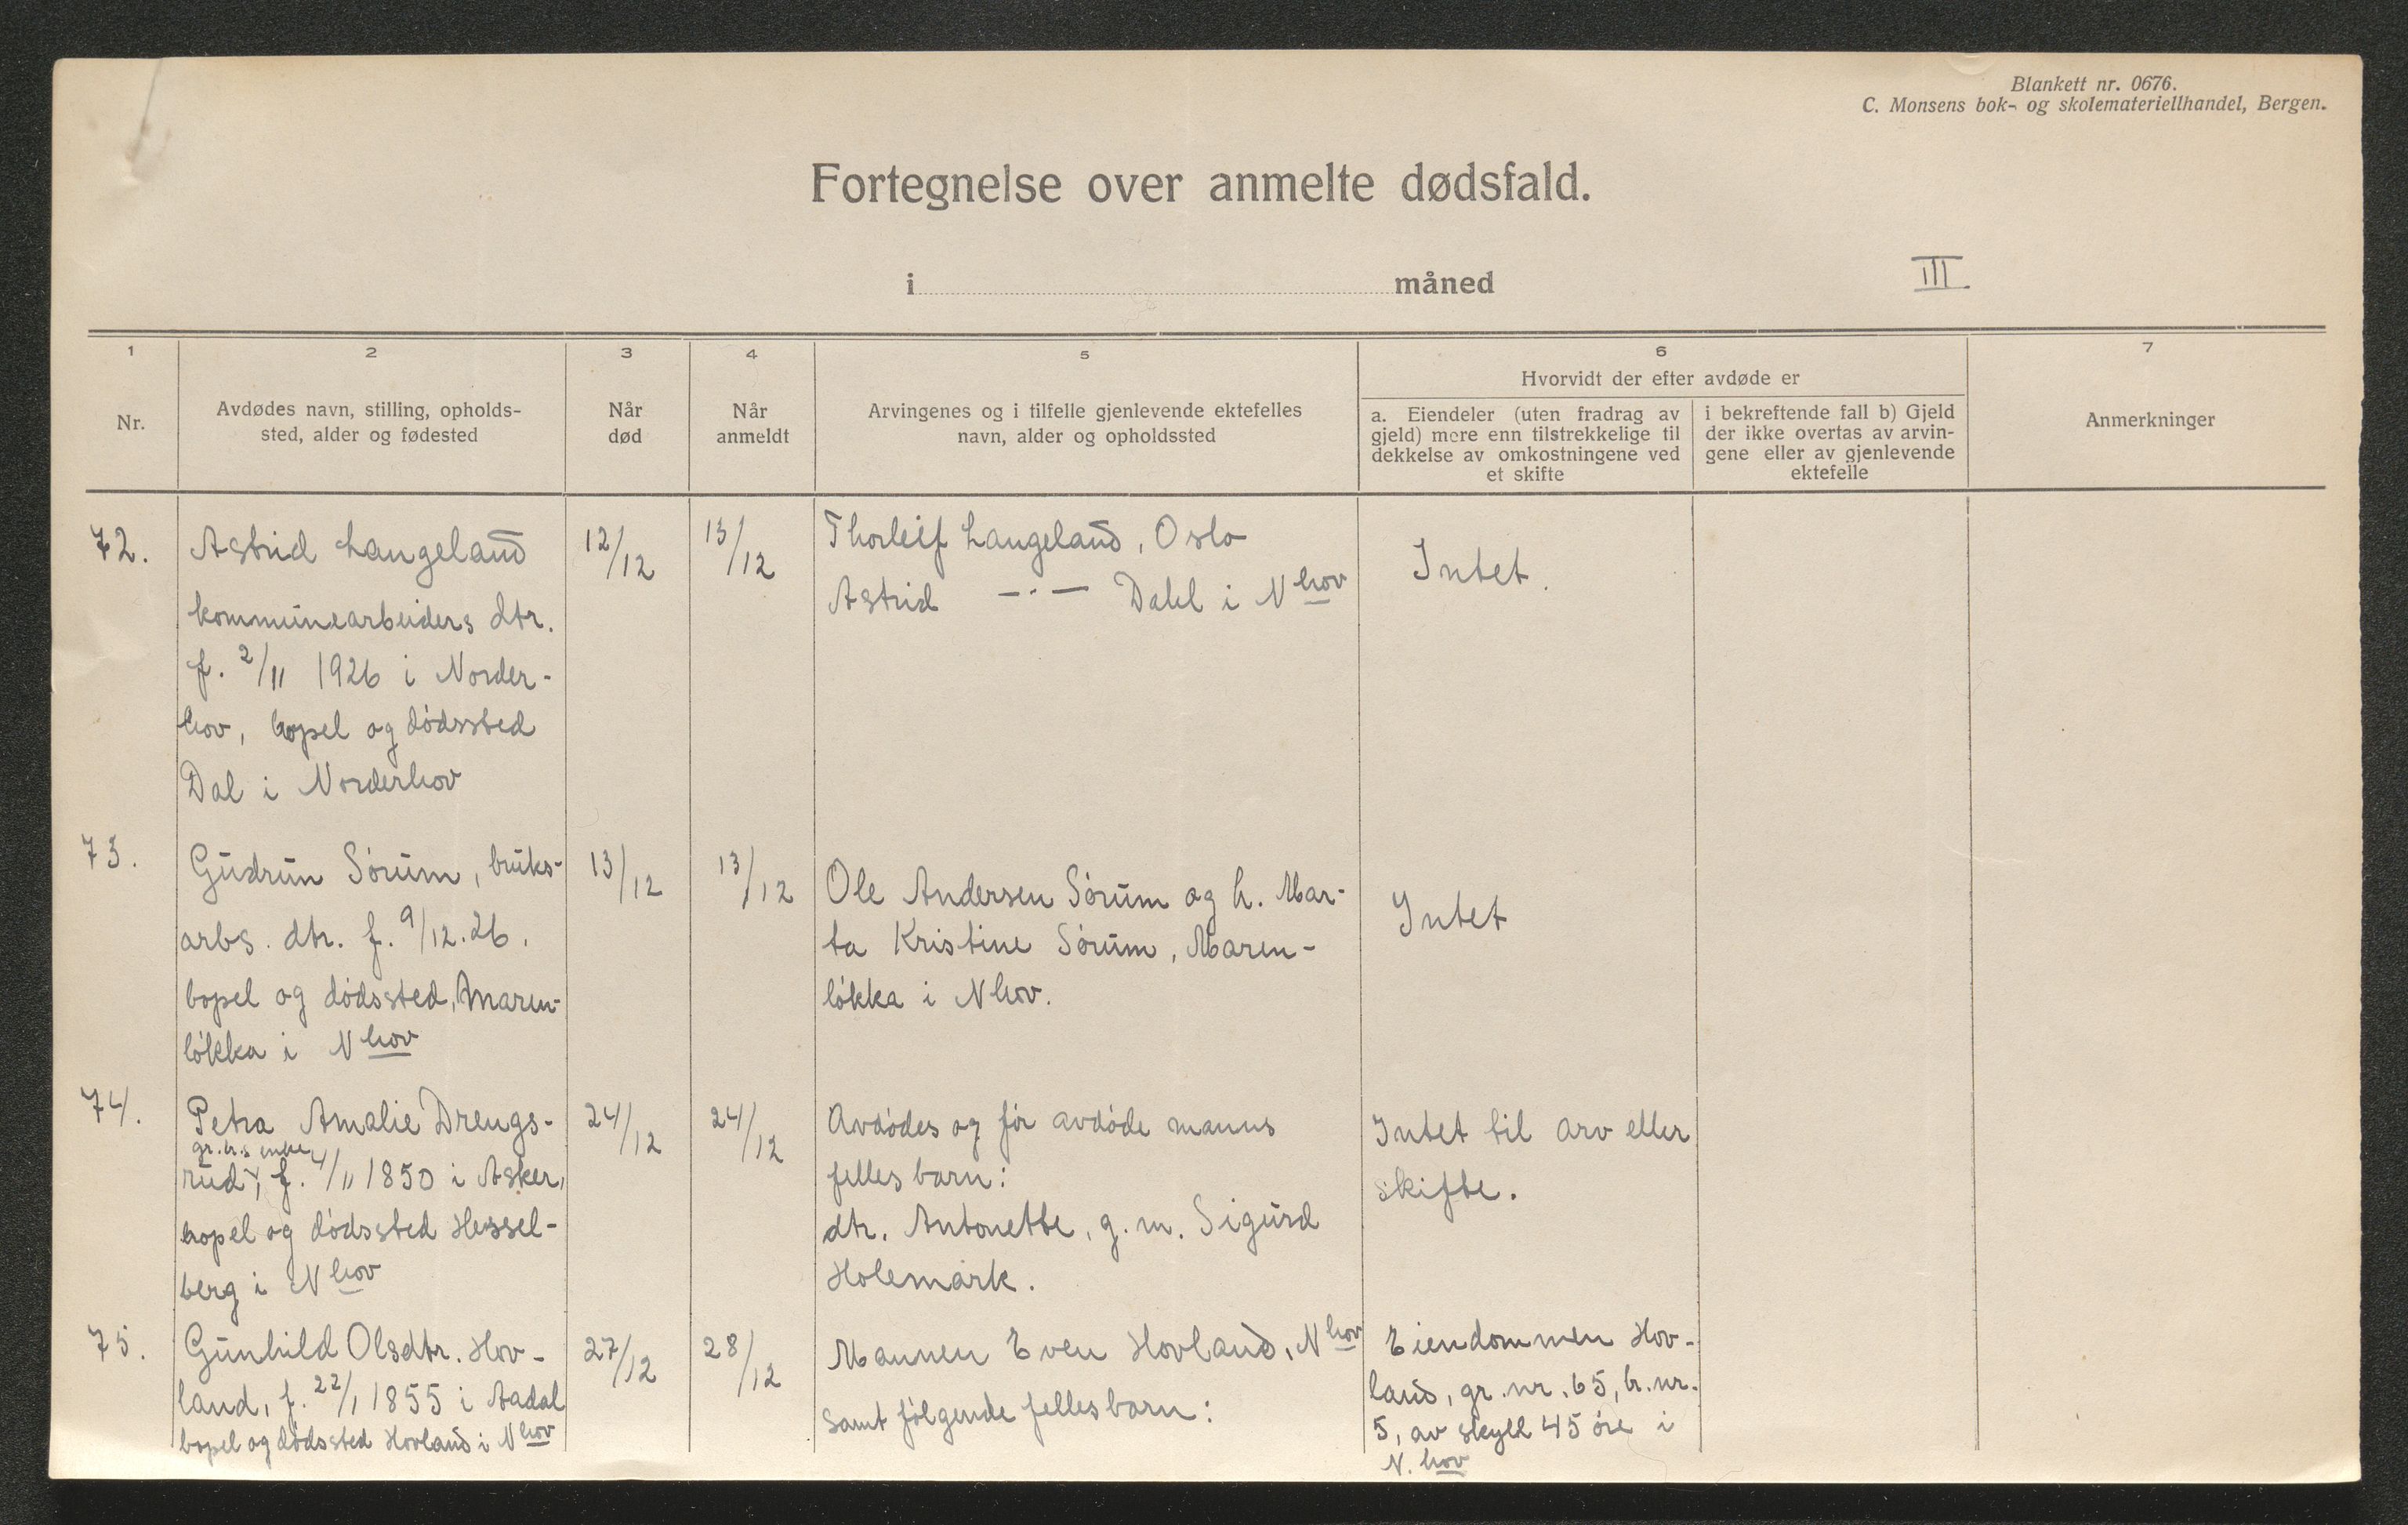 Blankett nr. 0676.
C. Monsens bok- og skolemateriellhandel, Bergen.
Fortegnelse over anmelte dødsfald.
i måned
III
1
2
3
4
5
6
7
Nr.
Avdødes navn, stilling, opholds-
sted, alder og fødested
Når
død
Når
anmeldt
Arvingenes og i tilfelle gjenlevende ektefelles
navn, alder og opholdssted
Hvorvidt der efter avdøde er
a. Eiendeler (uten fradrag av
gjeld) mere enn tilstrekkelige til
dekkelse av omkostningene ved
et skifte
i bekreftende fall b) Gjeld
der ikke overtas av arvin-
gene eller av gjenlevende
ektefelle
Anmerkninger
72.
Astrid Langeland
kommunearbeiders dtr.
f. 2/11 1926 i Norder-
hov, bopel og dødssted
Dal i Norderhov
12/12
13/12
Thorleif Langeland, Oslo
Astrid —·— Dahl i Nhov
Intet.
73.
Gudrun Sørum, bruks-
arbs. dtr. f. 9/12.26.
bopel og dødssted, Maren-
løkka i Nhov
13/12
13/12
Ole Andersen Sørum og h. Mar-
ta Kristine Sørum, Maren-
løkka i Nhov.
Intet
74.
Petra Amalie Drengs-
gr.br.s enke
rud, f. 4/11 1850 i Asker,
bopel og dødssted Hessel-
berg i Nhov
24/12
24/12
Avdødes og før avdøde manns
felles barn:
dtr. Antonette, g. m. Sigurd
Holemark.
Intet til arv eller
skifte.
75.
Gunhild Olsdtr. Hov-
land, f. 22/1 1855 i Aadal
bopel og dødssted Hovland i Nhov
27/12
28/12
Mannen Even Hovland, Nhov
samt følgende felles barn:
Eiendommen Hov-
land, gr. nr. 65, br. nr.
5, av skyld 45 øre i
N. hov